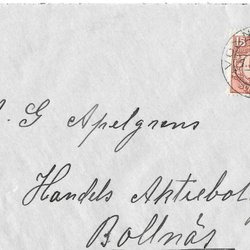 15
G Apelgrens
Handels Aktiebol
Bollnäs